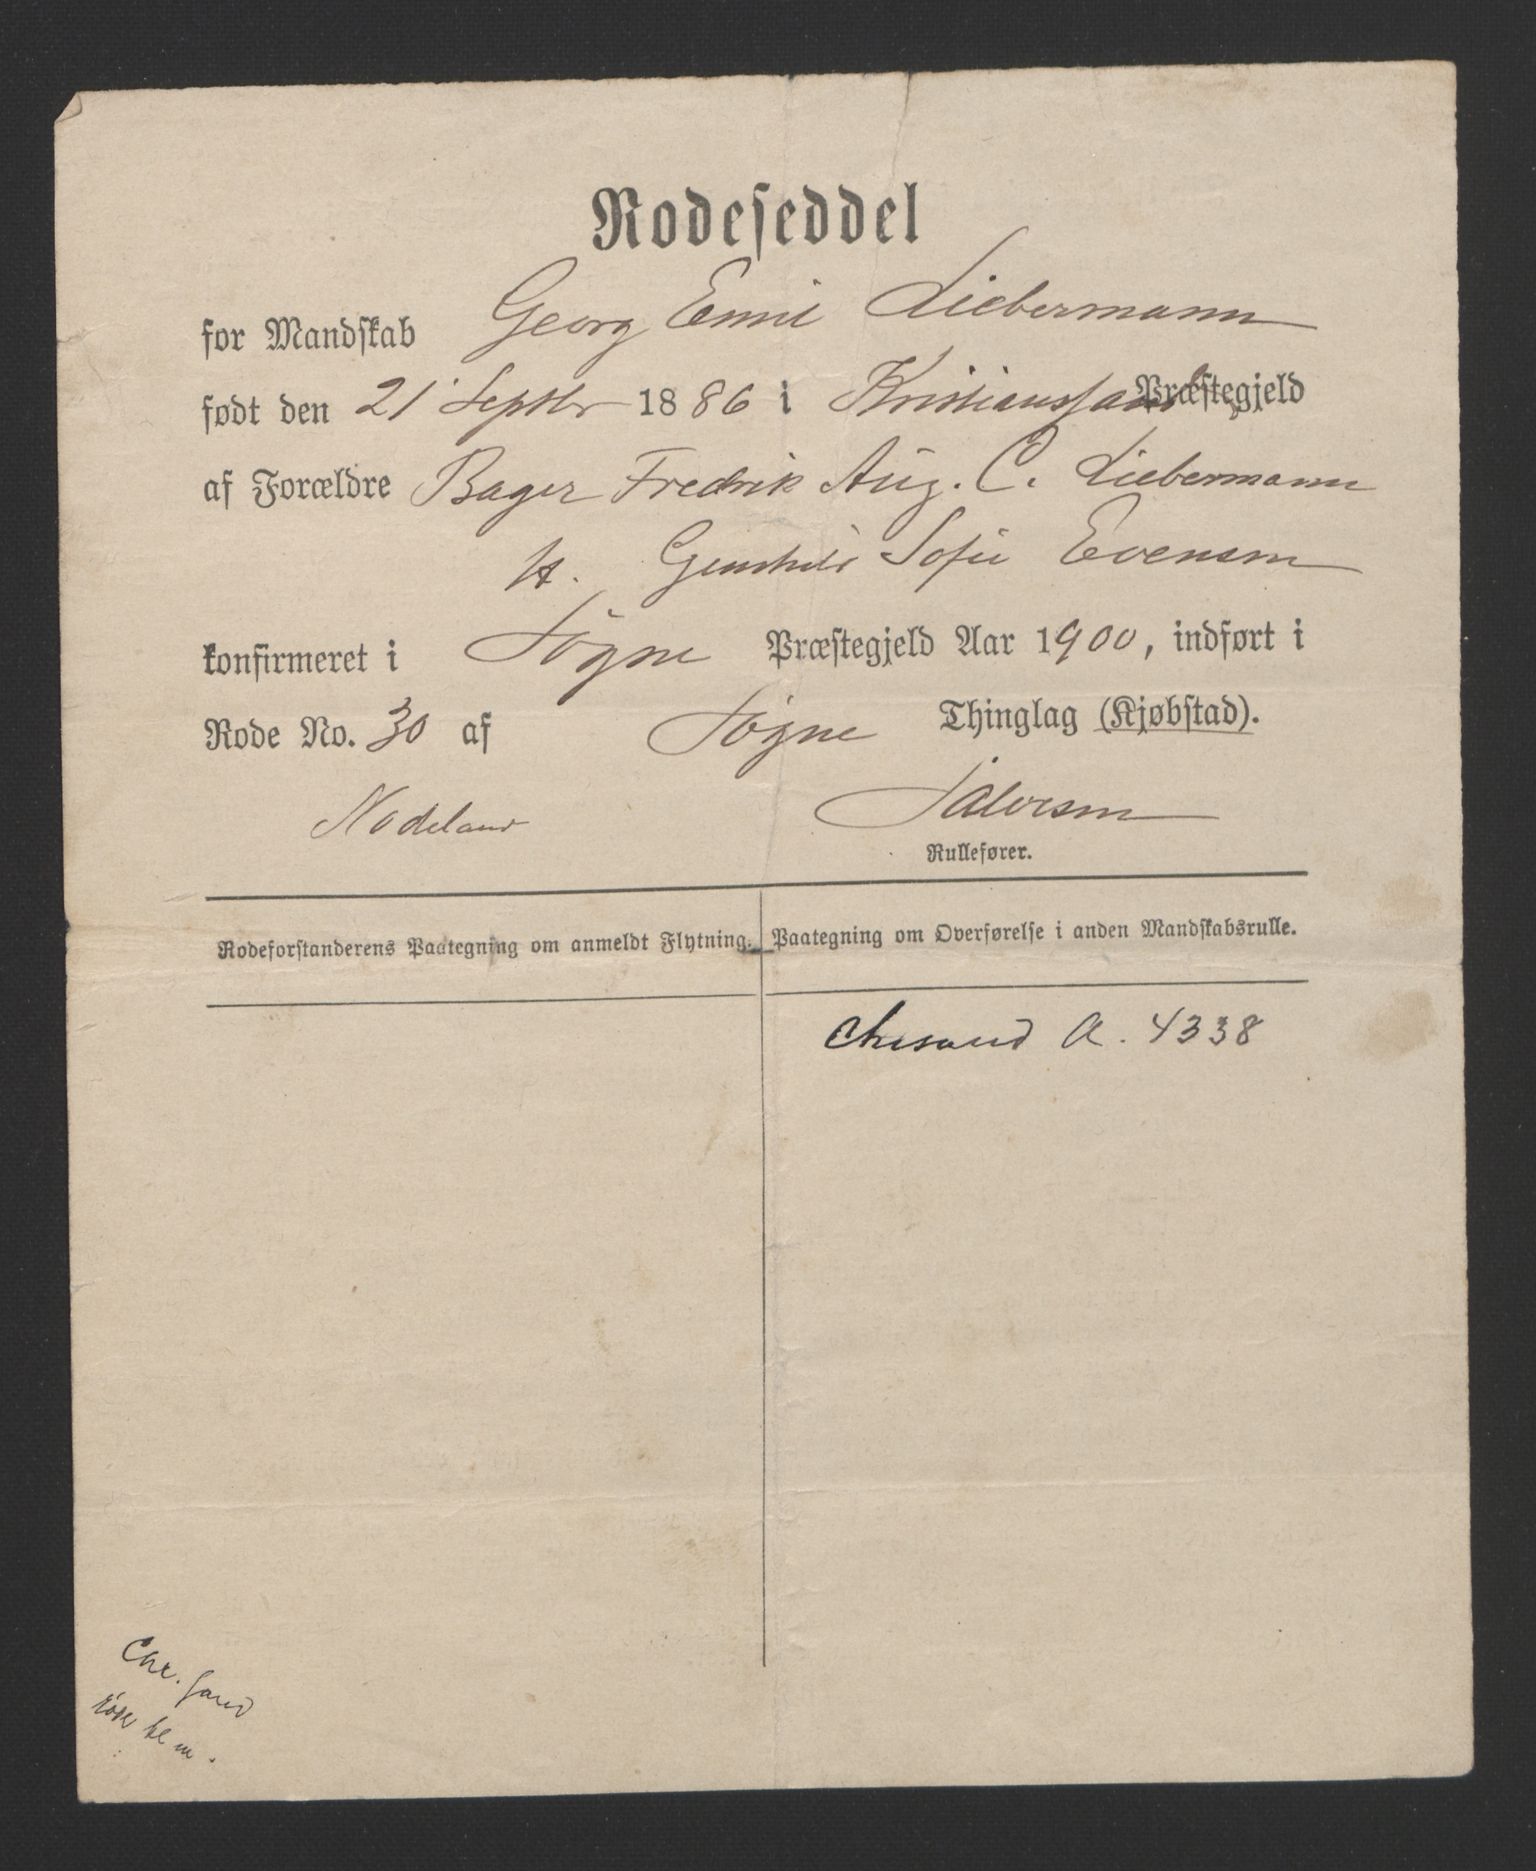 Rodeseddel
for Mandskab Georg Emil Liebermann
født den 21 Septbr 1886 i Kristianssand Præstegjeld
af Forældre Bager Fredrik Aug. C. Liebermann
H. Gunhild Sofie Evensen
konfirmeret i Søgne Præstegjeld Aar 1900, indført i
Rode No. 30 af Søgne Thinglag (Kjøbstad).
Nodeland Salvesen
Rullefører.
Rodeforstanderens Paategning om anmeldt Flytning. Paategning om Overførelse i anden Mandskabsrulle.
Chrsand A. 4338
Chr.sand